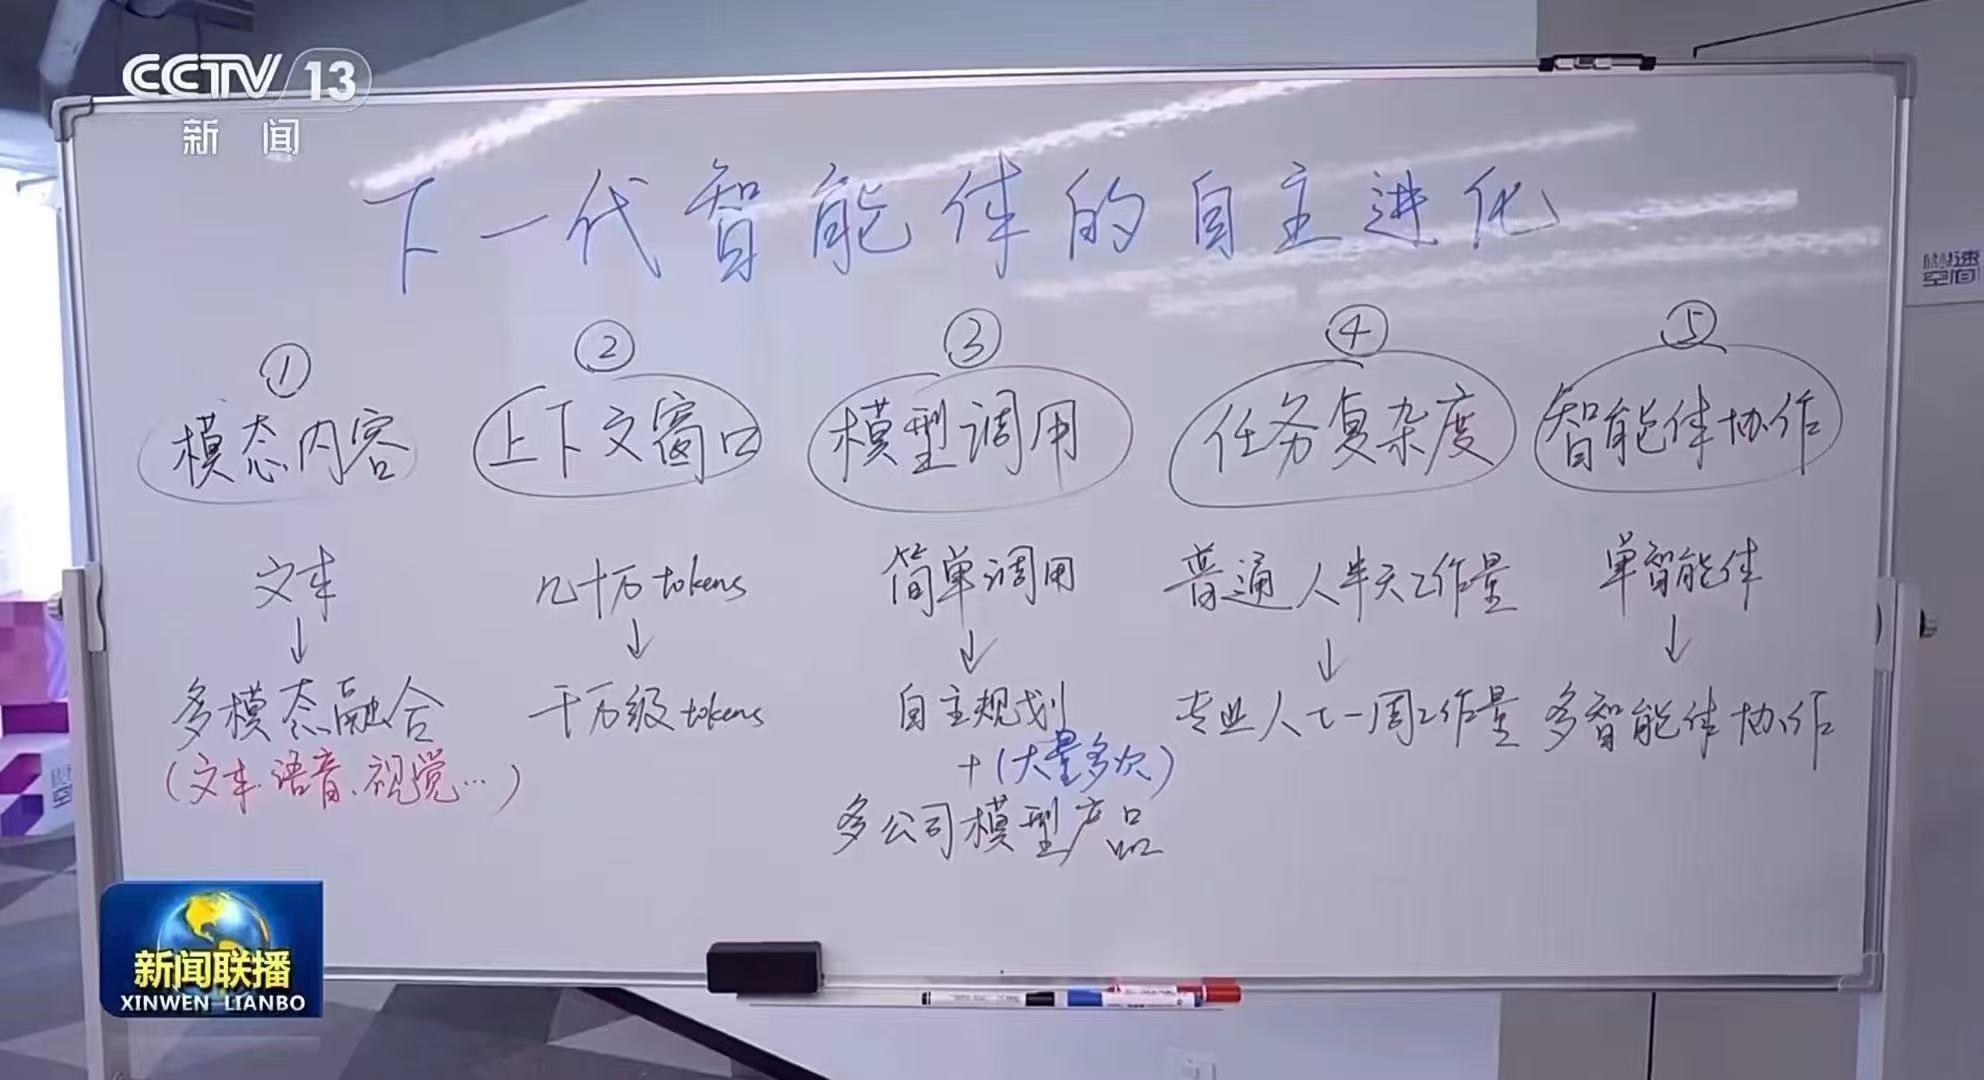 CCTV 13
新闻
下一代智能体的自主进化
① ② ③ ④ ⑤
模态内容 上下文窗口 模型调用 任务复杂度 智能体协作
文本 几十万tokens 简单调用 普通人半天工作量 单智能体
↓ ↓ ↓ ↓ ↓
多模态融合 千万级tokens 自主规划 专业人士一周工作量 多智能体协作
(文本.语音、视觉…) +(大量多次)
多公司模型产品
速
空间
空
新闻联播
XINWEN LIANBO